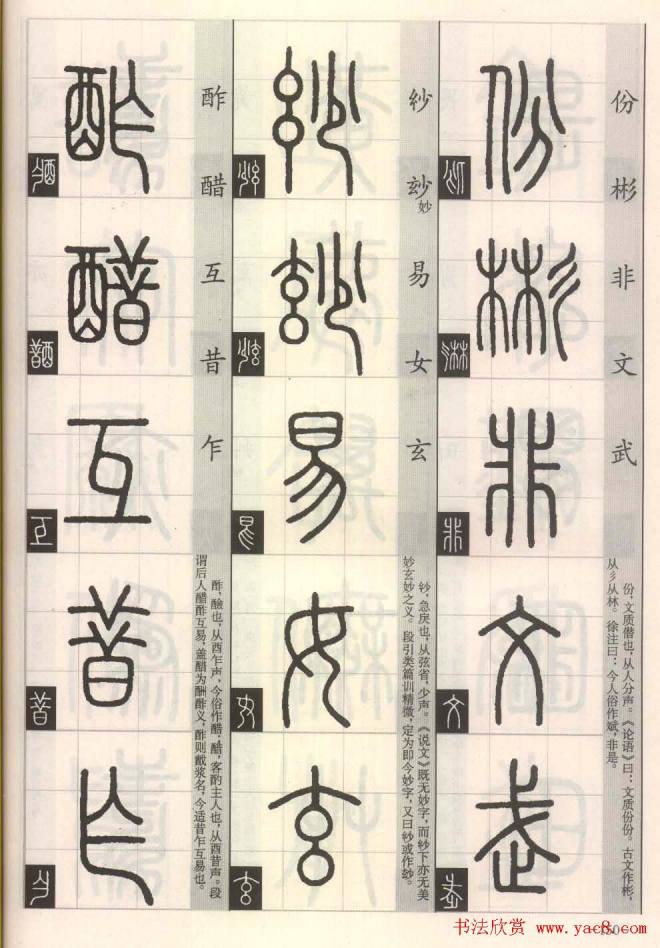 份 彬 非 文 武
份,文质僭也,从人分声。《论语》曰:文质份份。古文作彬,
从彡从林。徐注曰:今人俗作斌,非是。
紗 玅妙 易 女 玄
急戾也,从弦省,少声。《说文》既无妙字,而紗下亦无美
妙玄妙之义。段引类篇训精微,定为即今妙字,又曰紗或作玅。
酢 醋 互 昔 乍
酢,醶也,从酉乍声,今俗作醋,醋,客酌主人也,从酉昔声。段
谓后人醋酢互易,盖醋为酬酢义,酢则酨浆名,今适昔乍互易也。
书法欣赏 www.yac8.com